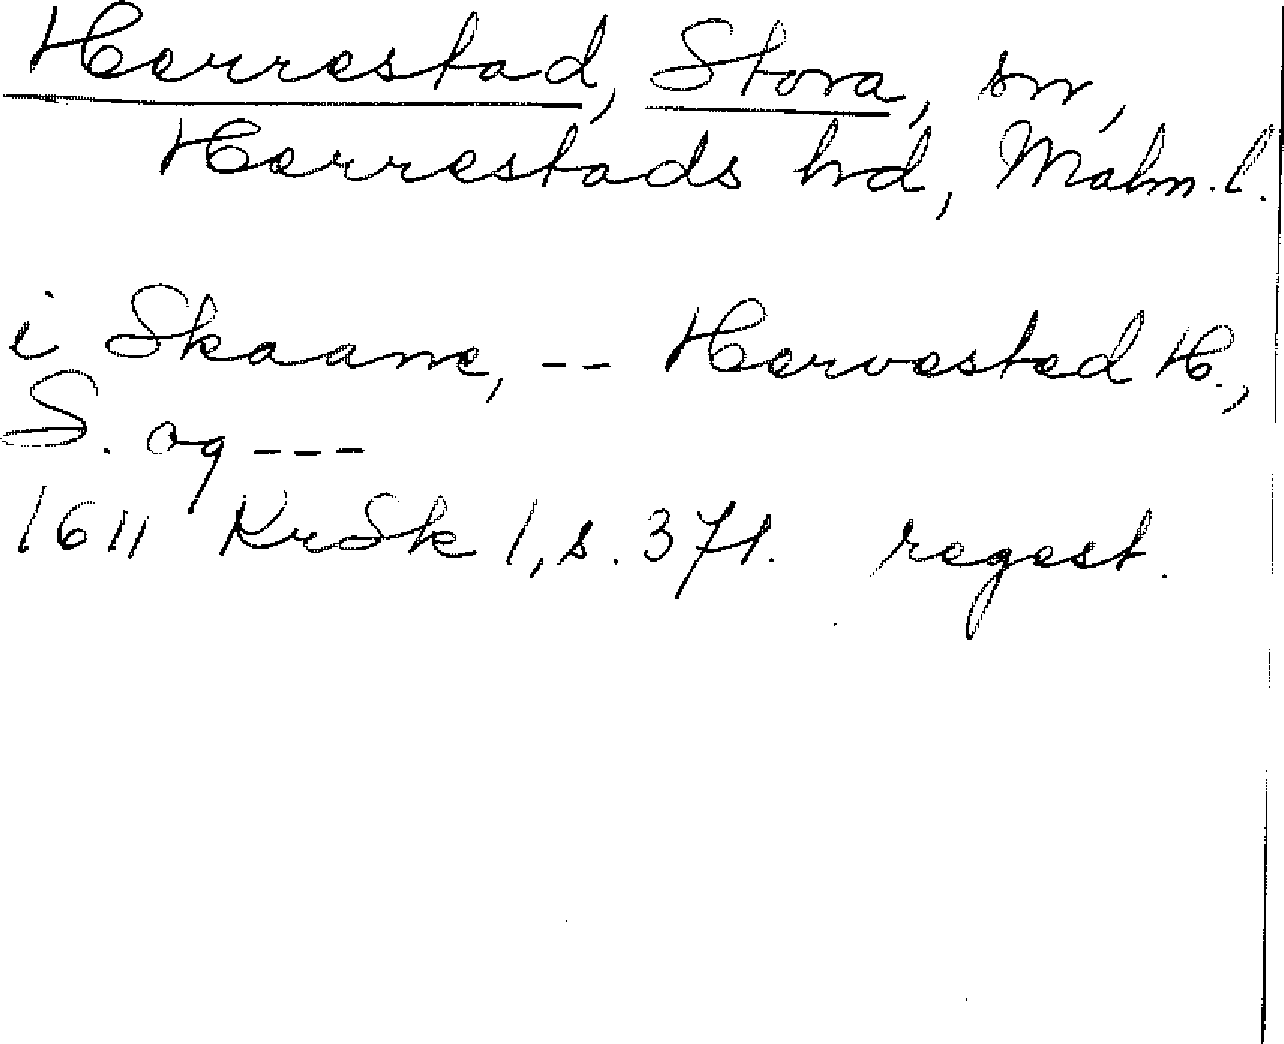 Herrestad, Stora, sn,
Herrestads hd, Malm. l.
i Skaane, -- Hervested H.,
S. og ---
1611 KrSk 1, s. 371. regest.